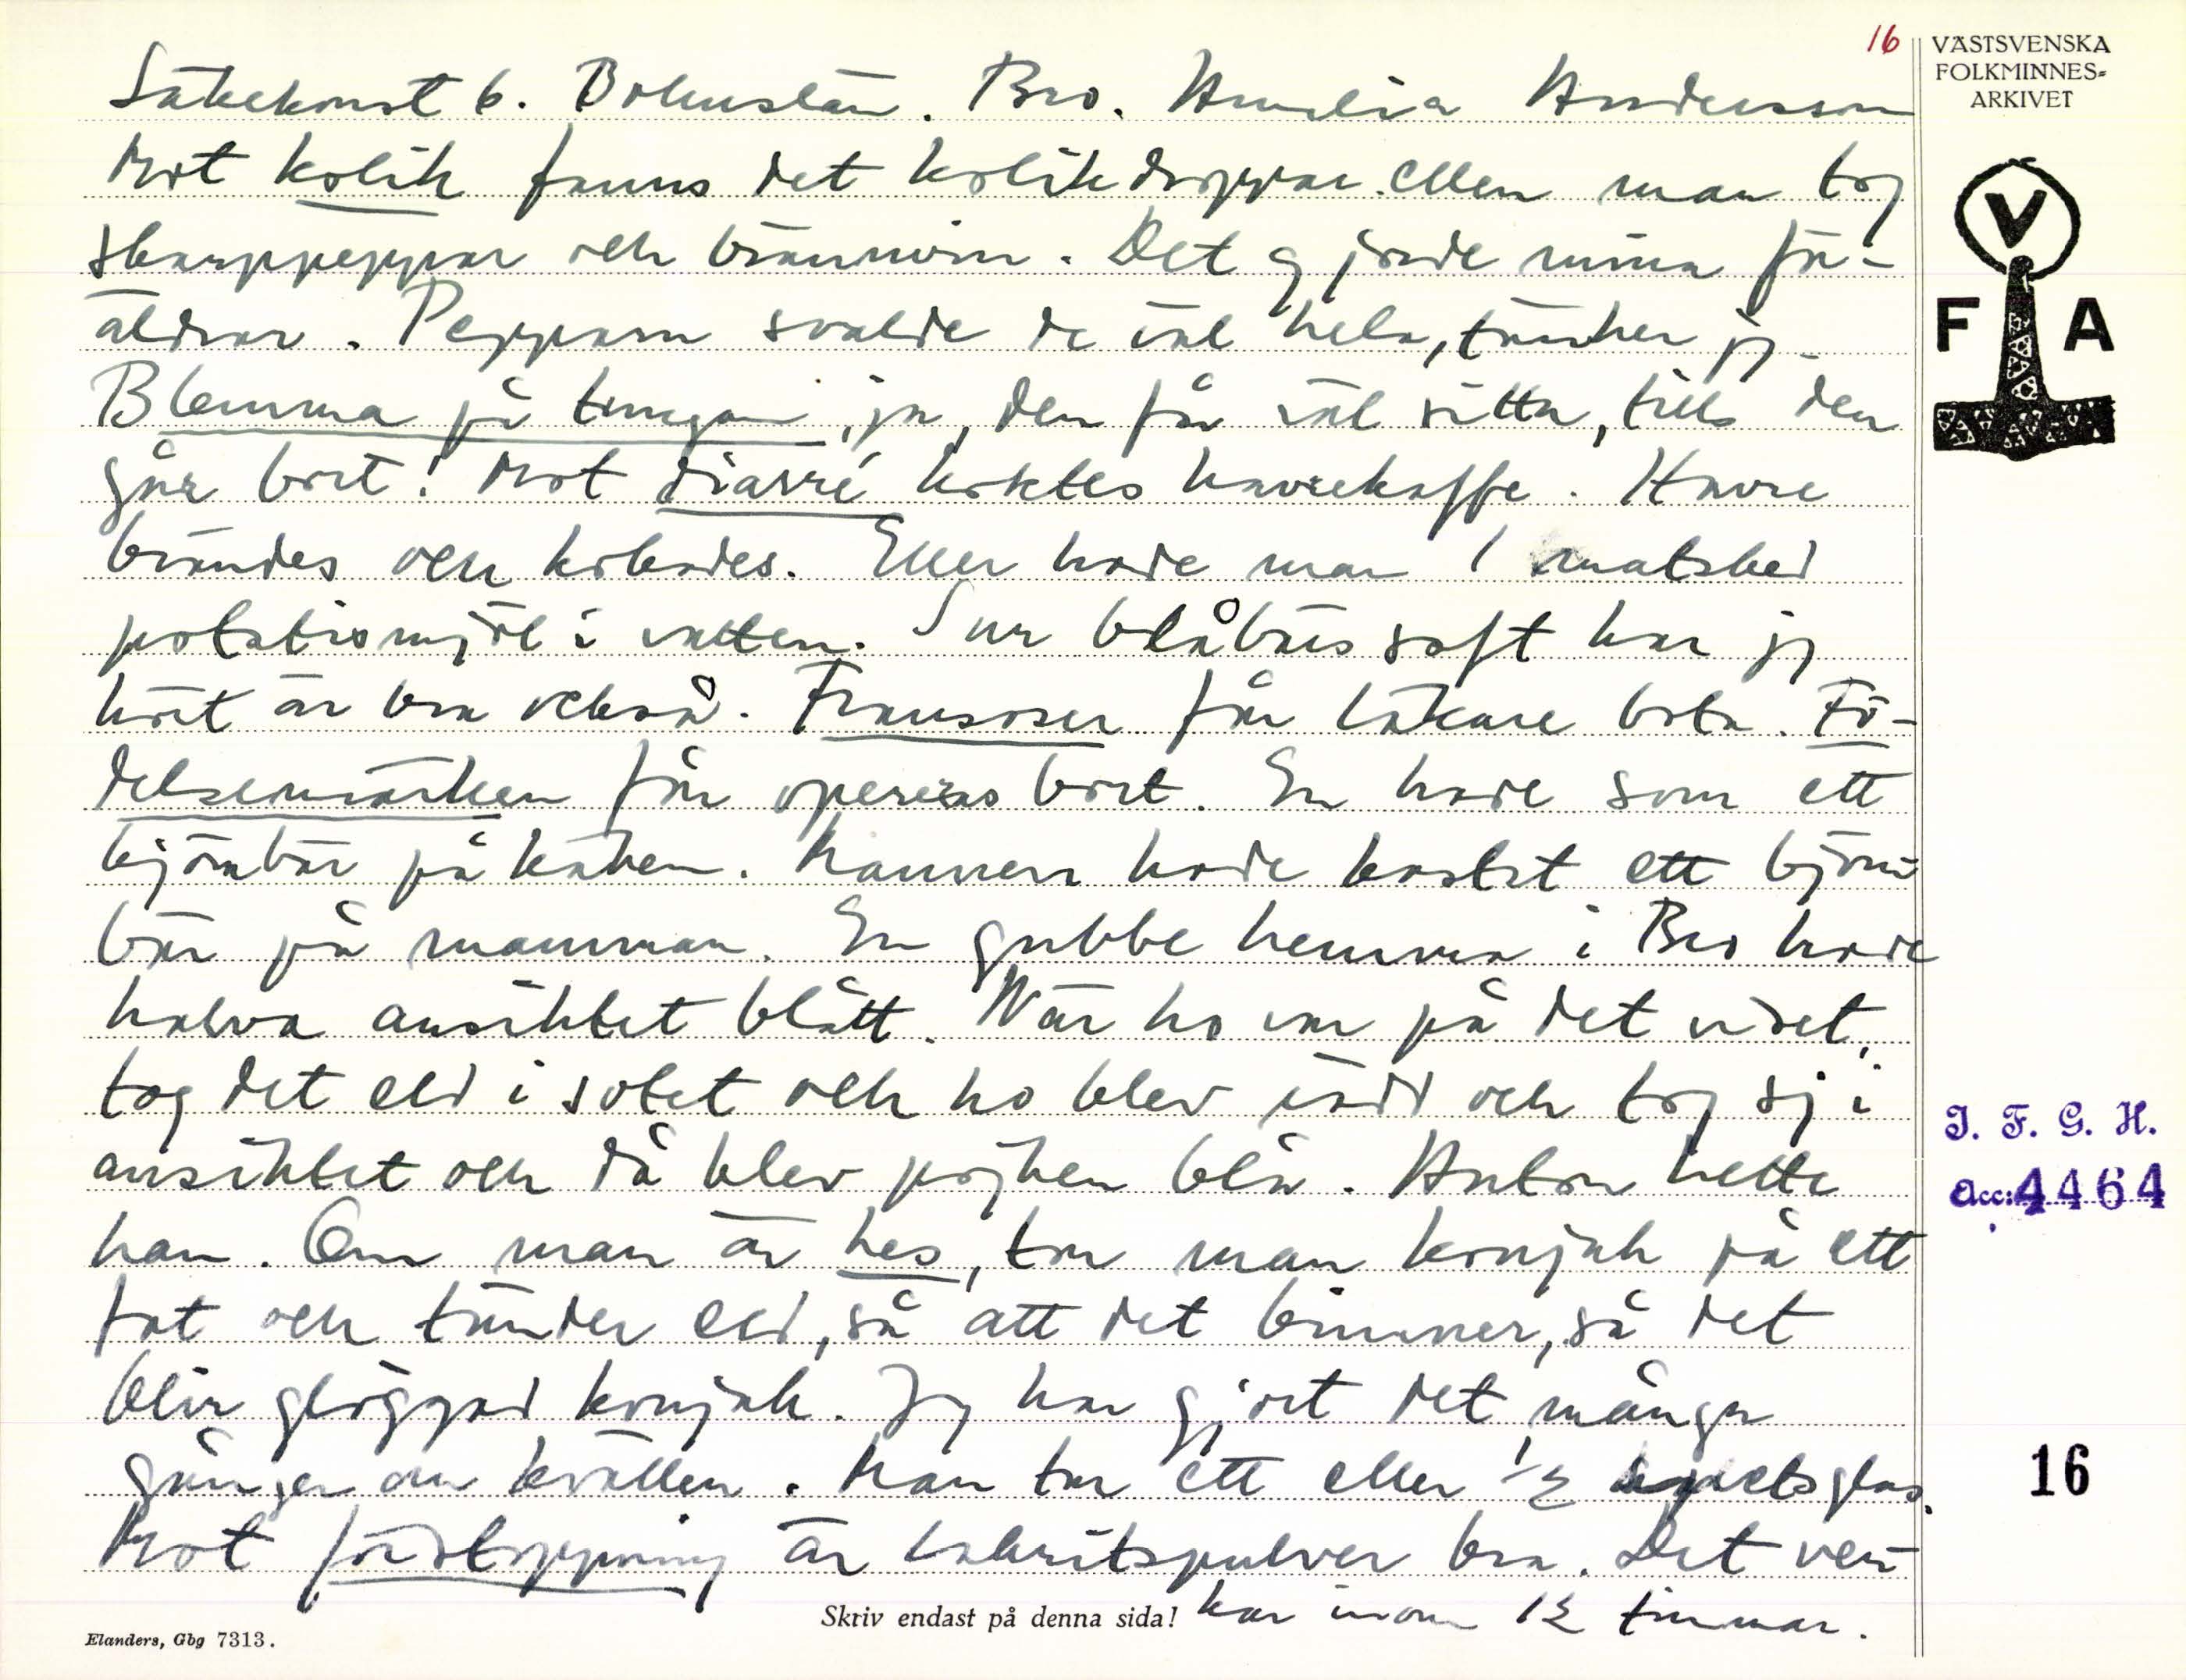 16
VÄSTSVENSKA
FOLKMINNES-
ARKIVET
V
F A
Läkekonst 6. Bohuslän. Bro. Amelia Andersson
Mot kolik fanns det kolikdroppar. Ellen man tog
skarppeppar och brännvin. Det gjorde mina för-
äldrar. Pepparn svalde de väl hela, tänker jj.
Blemma på tungan, ja, den får väl sitta, tills den
går bort! Mot diarré koktes havrekaffe. Havre
brändes och kokades. Eller hade man 1 matsked
potatismjöl i vatten. Sur blåbärssaft har jj
hört är bra också. Fransoser får läkare bota. Fö-
delsemärken får opereras bort. En hade som ett
björnbär på käken. Mannen hade kastat ett björn-
bär på mamman. En gubbe hemma i Bro hade
halva ansiktet blått. När ho var på det viset,
tog det eld i sotet och ho blev rädd och tog sj i
ansiktet och då blev pojken blå. Anton hette
han. Om man är hes, tar man konjak på ett
fat och tänder eld, så att det brinner, så det
blir glöggad konjak. Jg har gjort det många
gånger om kvällen. Man tar ett eller 1/2
Mot förstoppning är lakritspulver bra. Det ver-
kar inom 12 timmar.
Skriv endast på denna sida!
Elanders, Gbg 7313.
I. F. G. H.
Acc: 4464
16